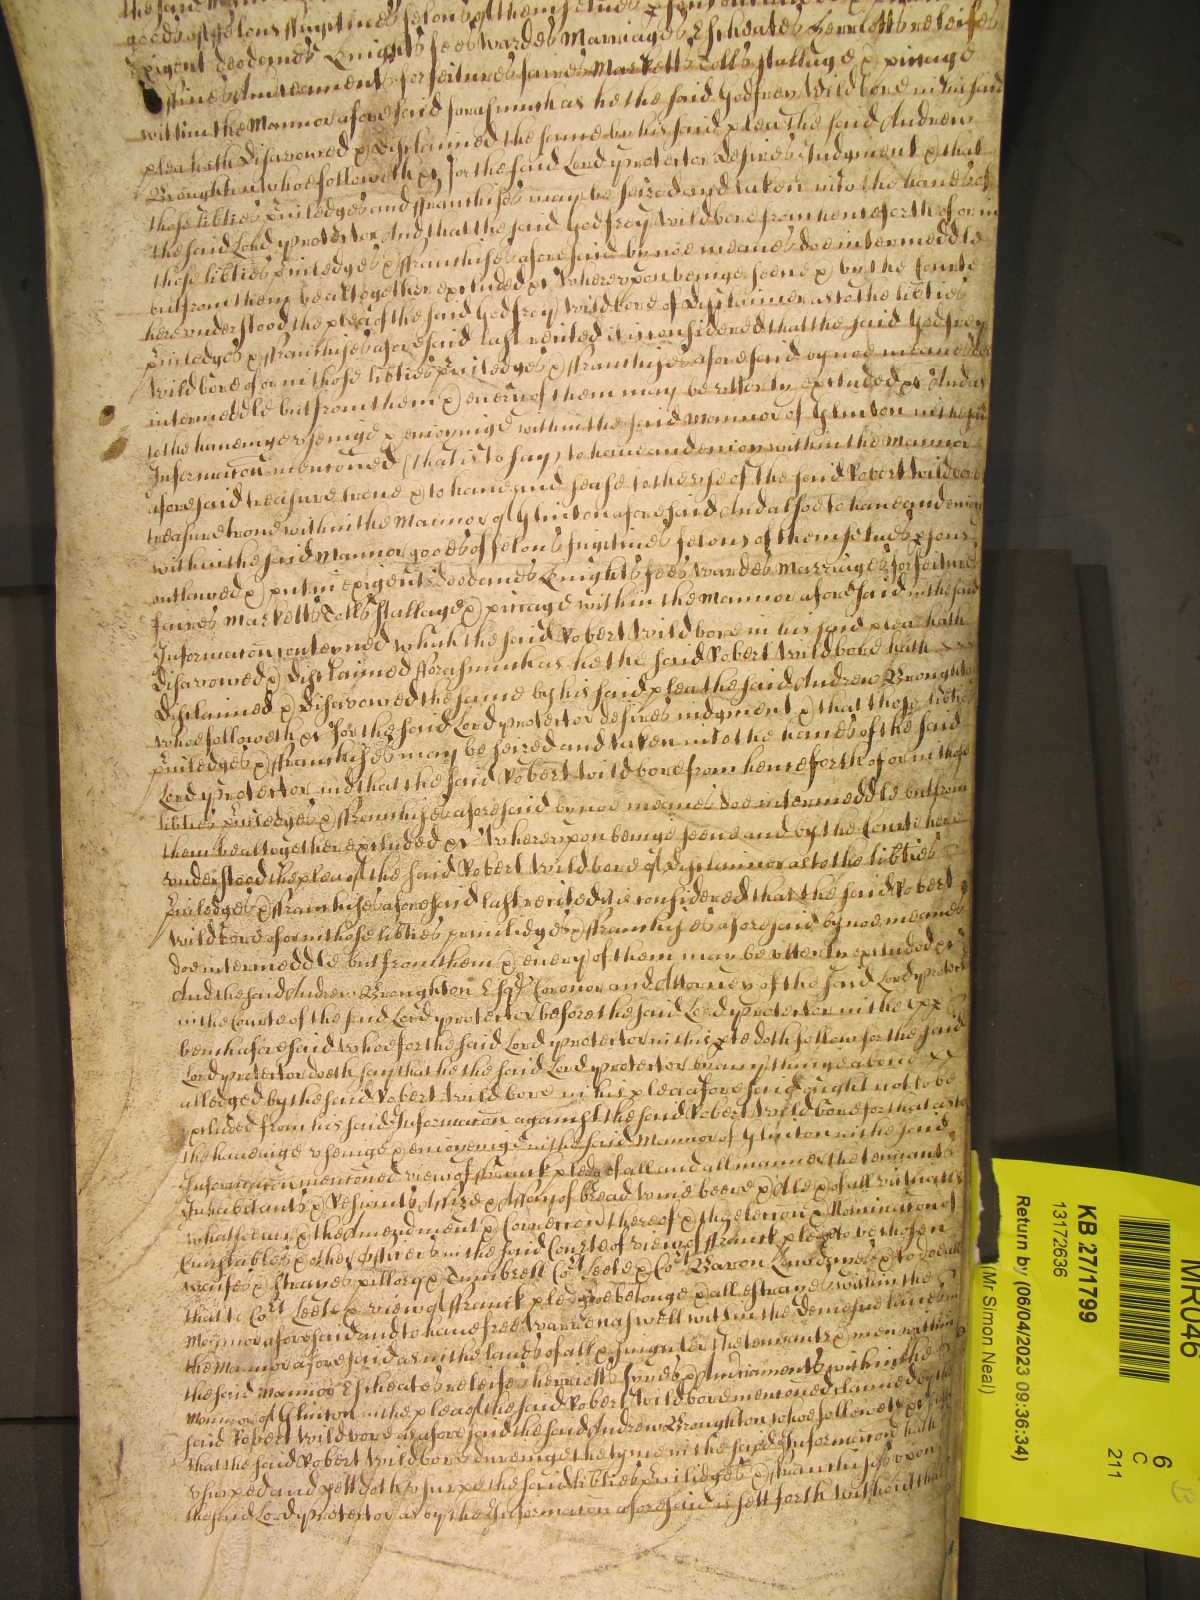 the said
goods of felons ffugitives felons of themselves
exigent deodands Knights fees wardes Marriages Escheates herriotts releifes
ffines Amerceaments forfeitures faires Marketts Tolls stallage & piccage
within the Mannor aforesaid forasmuch as he the said Godfrey Wildbore in his said
plea hath Disavowed & Disclaimed the same by his said plea the said Andrew
Broughton whoe followeth &c for the said Lord Protector desires Judgment & that
those libties priviledges and ffranchises may be seized and taken into the hands of
the said Lord Protector And that the said Godfrey Wildbore from henceforth of or in
those libties priviledges & ffranchises aforesaid by noe meanes doe intermeddle
but from them be altogether excluded &c Whereupon beinge seene & by the Courte
here understood the plea of the said Godfrey Wildbore of Disclaimer as to the libties
priviledges & ffranchises aforesaid last recited it is considered that the said Godfrey
Wildbore of or in those libties priviledges & ffranchises aforesaid by noe meanes doe
intermeddle but from them & every of them may be utterly excluded &c And as
to the haveinge useinge & enioyinge within the said Mannor of Glinton in the said
Informacon menconed (that is to say) to have and enioy within the Mannor
aforesaid treasure trove & to have and sease to the use of the said Robert Wildbore
treasure trove within the Mannor of Glinton aforesaid And alsoe to have and enioy
within the said Mannor goods of felons fugitives felons of themselves & psons
outlawed & put in exigent deodands Knights fees wardes Marriages forfeitures
faires Marketts Tolls stallage & piccage within the Mannor aforesaid in the said
Informacon conteyned which the said Robert Wildbore in his said plea hath
Disavowed & Disclaimed fforasmuch as he the said Robert Wildbore hath
Disclaimed & Disavowed the same by his said plea the said Andrew Broughton
whoe followeth &c for the said Lord Protector desires iudgment & that those libties
priviledges & ffranchises may be seized and taken into the hands of the said
Lord Protector And that the said Robert Wildbore from henceforth of or in those
libties priviledges & ffranchises aforesaid by noe meanes doe intermeddle but from
them be altogether excluded &c Whereupon beinge seene and by the Courte here
understood the plea of the said Robert Wildbore of Disclaimor as to the libties
priviledges & ffranchises aforesaid last recited it is considered that the said Robert
Wildbore of or in those libties priviledges & ffranchises aforesaid by noe meanes
doe intermeddle but from them & every of them may be utterly excluded &c
And the said Andrew Broughton Esqr Coronor and Attorney of the said Lord Protector
in the Courte of the said Lord Protector before the said Lord Protector in the upper
bench aforesaid whoe for the said Lord Protector in this pte doth follow for the said
Lord Protector doeth say that he the said Lord Protector by any thinge above
alledged by the said Robert Wildbore in his plea aforesaid ought not to be
pcluded from his said Informacon against the said Robert Wildbore for that as to
the haveinge useinge & enioyeinge in the said Mannor of Glinton in the said
Informacon menconed view of ffranckpledge of all and all manner the tennants
Inhabitants & Resiants Assize & Assay of bread wine beere & Ale & of all victualls
whatsoever & the Amendment & Correccon thereof & the eleccon & Nominacon of
Cunstables & other officers in the said Courte of view of ffranckpledge to be chosen
waifes & strayes pillory & Tumbrell Cort Leete & Cort Baron Lawdayes & to doe all
that to Cort Leete & view of ffranckpledge belonge & all estrayes within the
Mannor aforesaid and to have free warren aswell within the demesne lands of
the Mannor aforesaid as in the lands of all & singuler the tennants & men within
the said Mannor Escheates releifes herriotts fynes & Amerciaments within the
Mannor of Glinton in the plea of the said Robert Wildbore menconed claimed by the
said Robert Wildbore as aforesaid the said Andrew Broughton whoe followeth &c saith
that the said Robert Wildbore dureinge the tyme in the said Informacon hath
usurped and yett doth usurpe the said libties priviledges & ffranchises upon
the said Lord Protector as by the Informacon aforesaid is sett forth without that
MR046
KB 27/1799
13172636
Return by (06/04/2023 09:36:34)
(Mr Simon Neal)
6
C
211